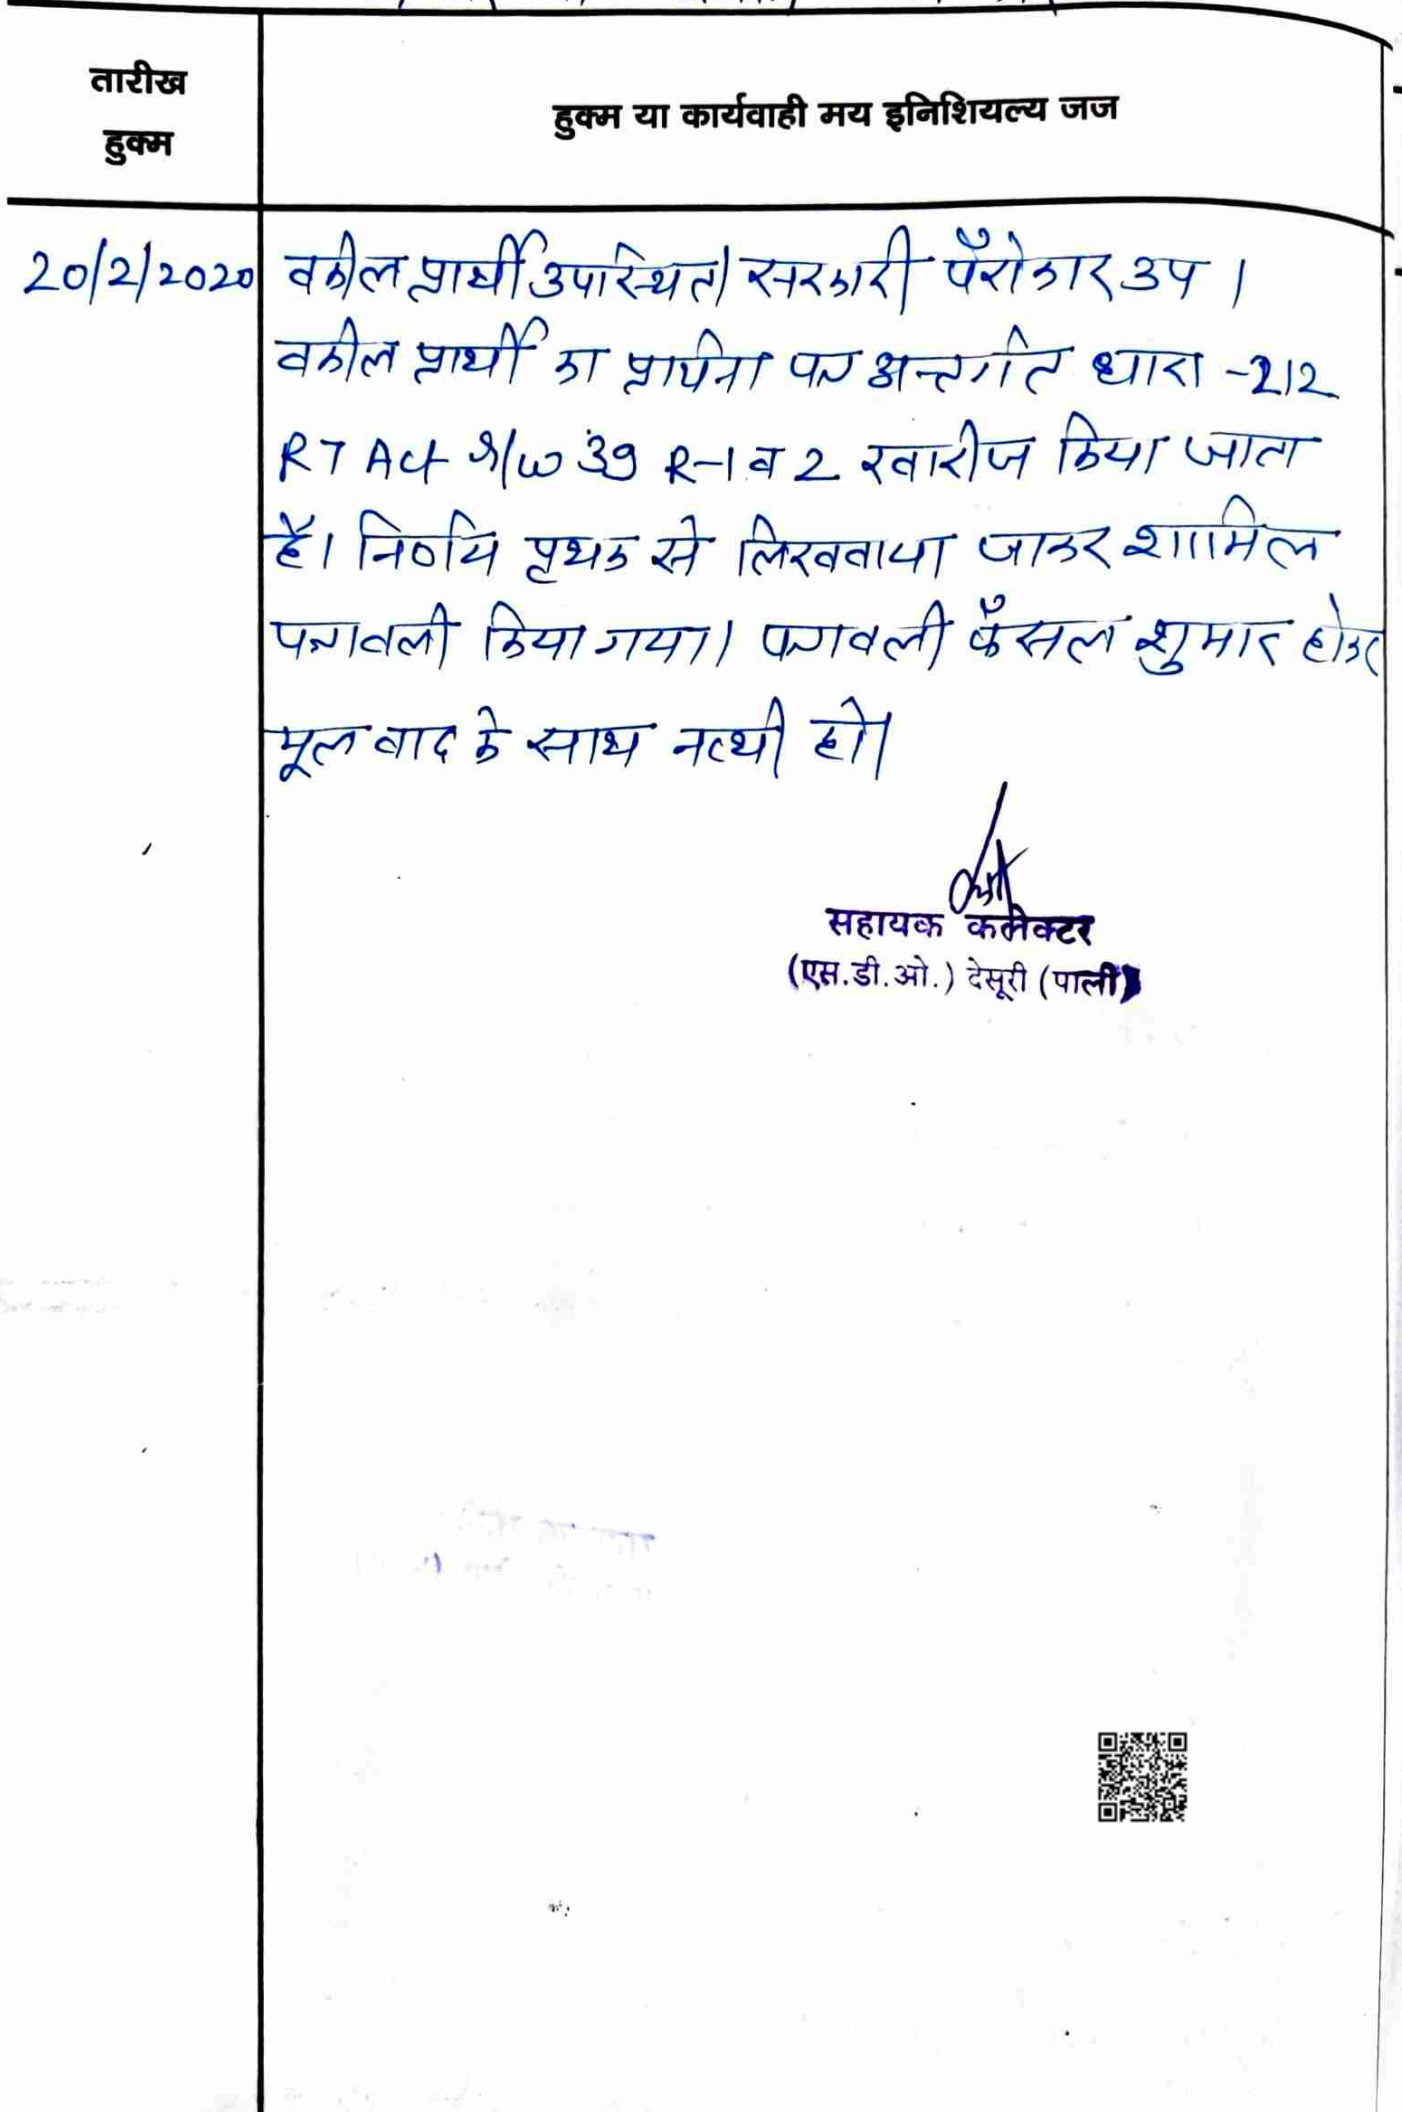 तारीख
हुक्म
हुक्म या कार्यवाही मय इनिशियल्य जज
20/2/2020 वकील प्रार्थी उपस्थित। सरकारी पैरोकार उप।
वकील प्रार्थी का प्रार्थना पत्र अन्तर्गत धारा -212
RT Act R/w 39 R-1 व 2 खारीज किया जाता
है। निर्णय पृथक से लिखवाया जाकर शामिल
पत्रावली किया गया। पत्रावली फैसल शुमार होकर
मूल वाद के साथ नत्थी हो।
सहायक कलेक्टर
(एस.डी.ओ.) देसूरी (पाली)